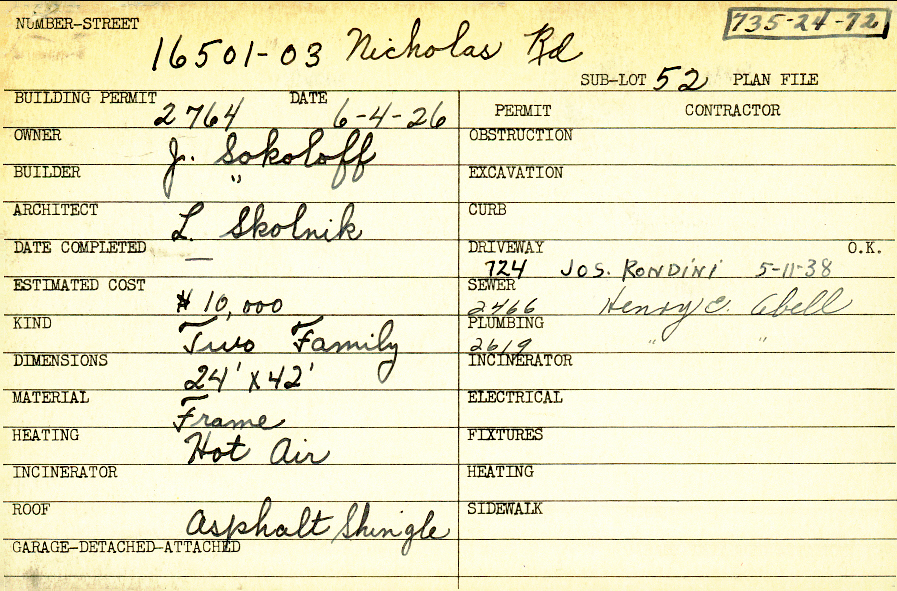 NUMBER-STREET 16501-03 Nicholas Rd 735-24-72
SUB-LOT 52 PLAN FILE
BUILDING PERMIT 2764 DATE 6-4-26
OWNER J. Sokoloff
BUILDER "
ARCHITECT L. Skolnik
DATE COMPLETED —
ESTIMATED COST $ 10,000
KIND Two Family
DIMENSIONS 24' X 42'
MATERIAL Frame
HEATING Hot Air
INCINERATOR
ROOF Asphalt Shingle
GARAGE-DETACHED-ATTACHED
PERMIT CONTRACTOR
OBSTRUCTION
EXCAVATION
CURB
DRIVEWAY O.K.
724 JOS. RONDINI 5-11-38
SEWER
2466 Henry C. Abell
PLUMBING
2619 " "
INCINERATOR
ELECTRICAL
FIXTURES
HEATING
SIDEWALK